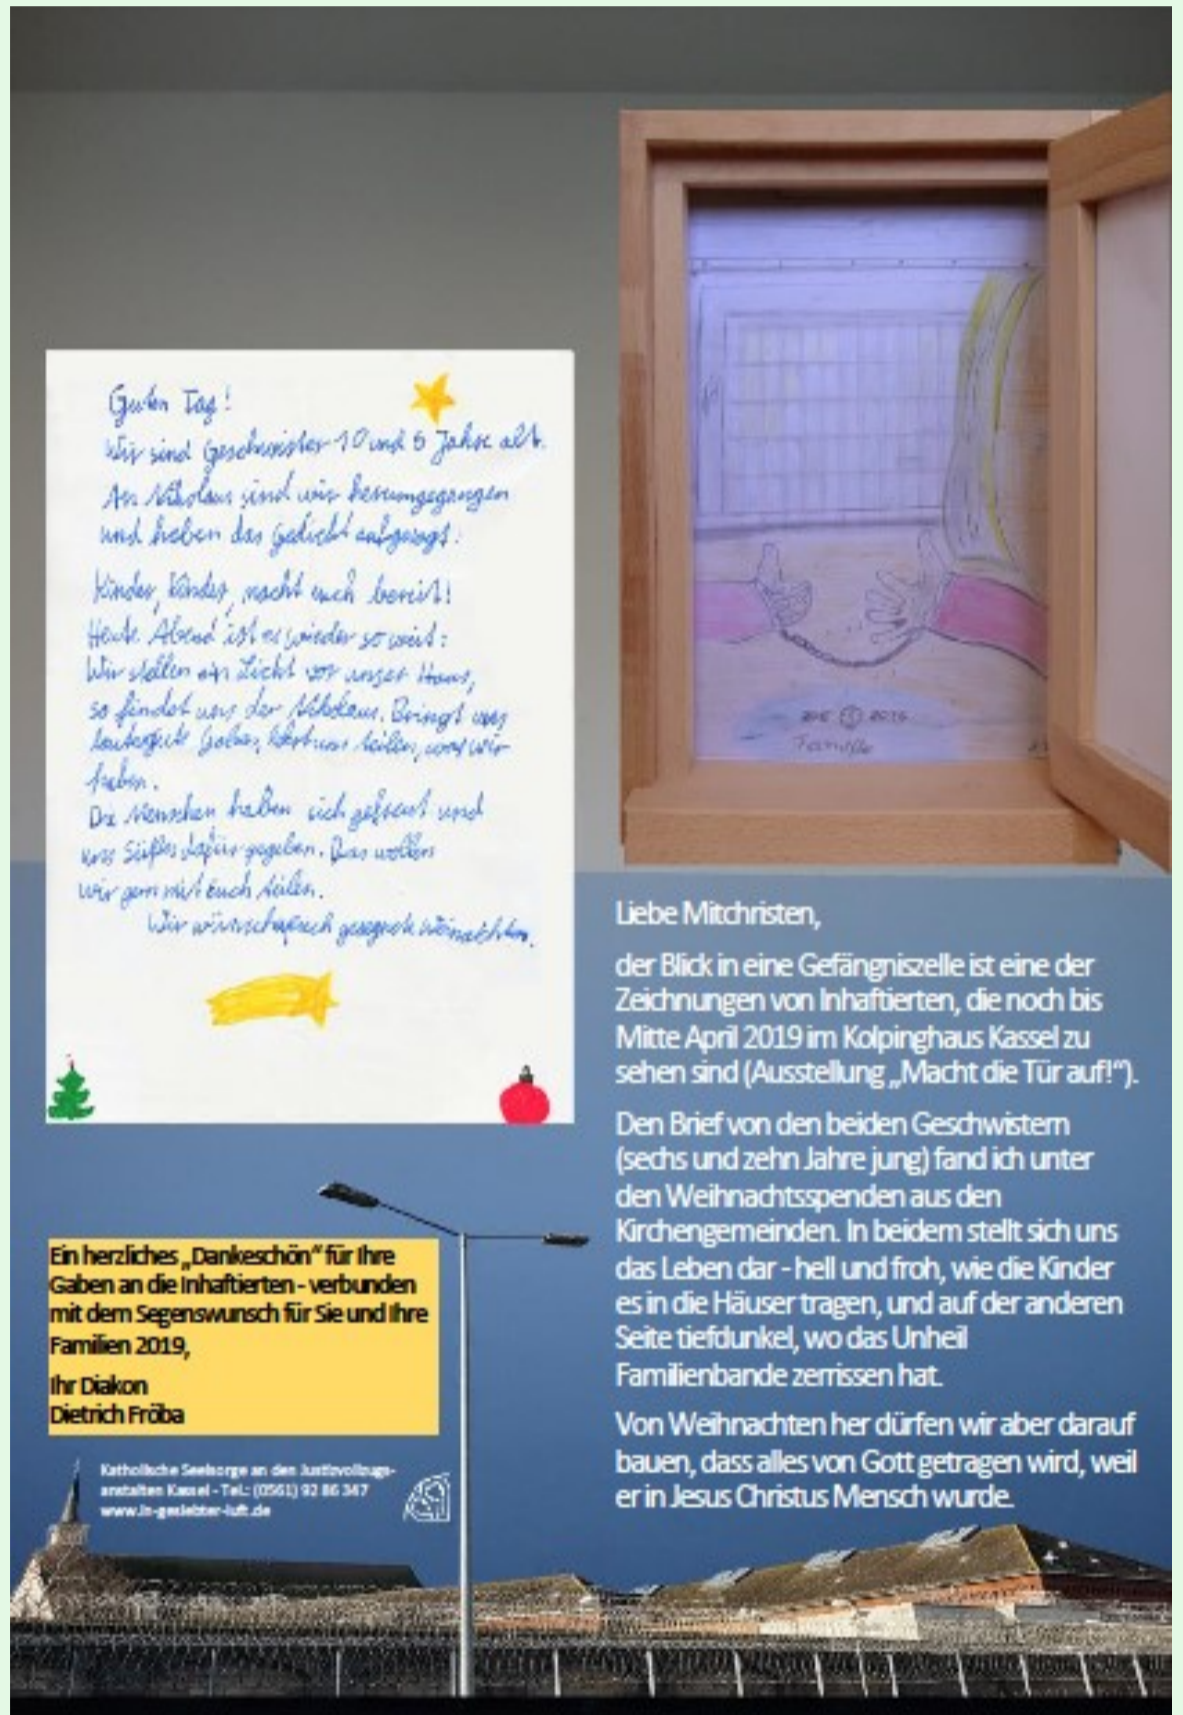 Guten Tag!
Wir sind Geschwister 10 und 6 Jahre alt.
An Nikolaus sind wir herumgegangen
und haben das Gedicht aufgesagt:
Kinder, Kinder, macht euch bereit!
Heute Abend ist es wieder so weit:
Wir stellen ein Licht vor unser Haus,
so findet uns der Nikolaus. Bringt uns
gute Gaben, teilen, was wir
haben.
Die Menschen haben sich gefreut und
uns Süßes dafür gegeben. Das wollen
wir gern mit Euch teilen.
Wir wünschen euch gesegnete
2016
Liebe Mitchristen,
der Blick in eine Gefängniszelle ist eine der
Zeichnungen von Inhaftierten, die noch bis
Mitte April 2019 im Kolpinghaus Kassel zu
sehen sind (Ausstellung „Macht die Tür auf!“).
Den Brief von den beiden Geschwistern
(sechs und zehn Jahre jung) fand ich unter
den Weihnachtsspenden aus den
Kirchengemeinden. In beidem stellt sich uns
das Leben dar - hell und froh, wie die Kinder
es in die Häuser tragen, und auf der anderen
Seite tiefdunkel, wo das Unheil
Familienbande zerrissen hat.
Von Weihnachten her dürfen wir aber darauf
bauen, dass alles von Gott getragen wird, weil
er in Jesus Christus Mensch wurde.
Ein herzliches „Dankeschön“ für Ihre
Gaben an die Inhaftierten - verbunden
mit dem Segenswunsch für Sie und Ihre
Familien 2019,
Ihr Diakon
Dietrich Fröba
Katholische Seelsorge an den Justizvollzugs-
anstalten Kassel - Tel.: (0561) 92 86 347
www.in-gesiebter-luft.de